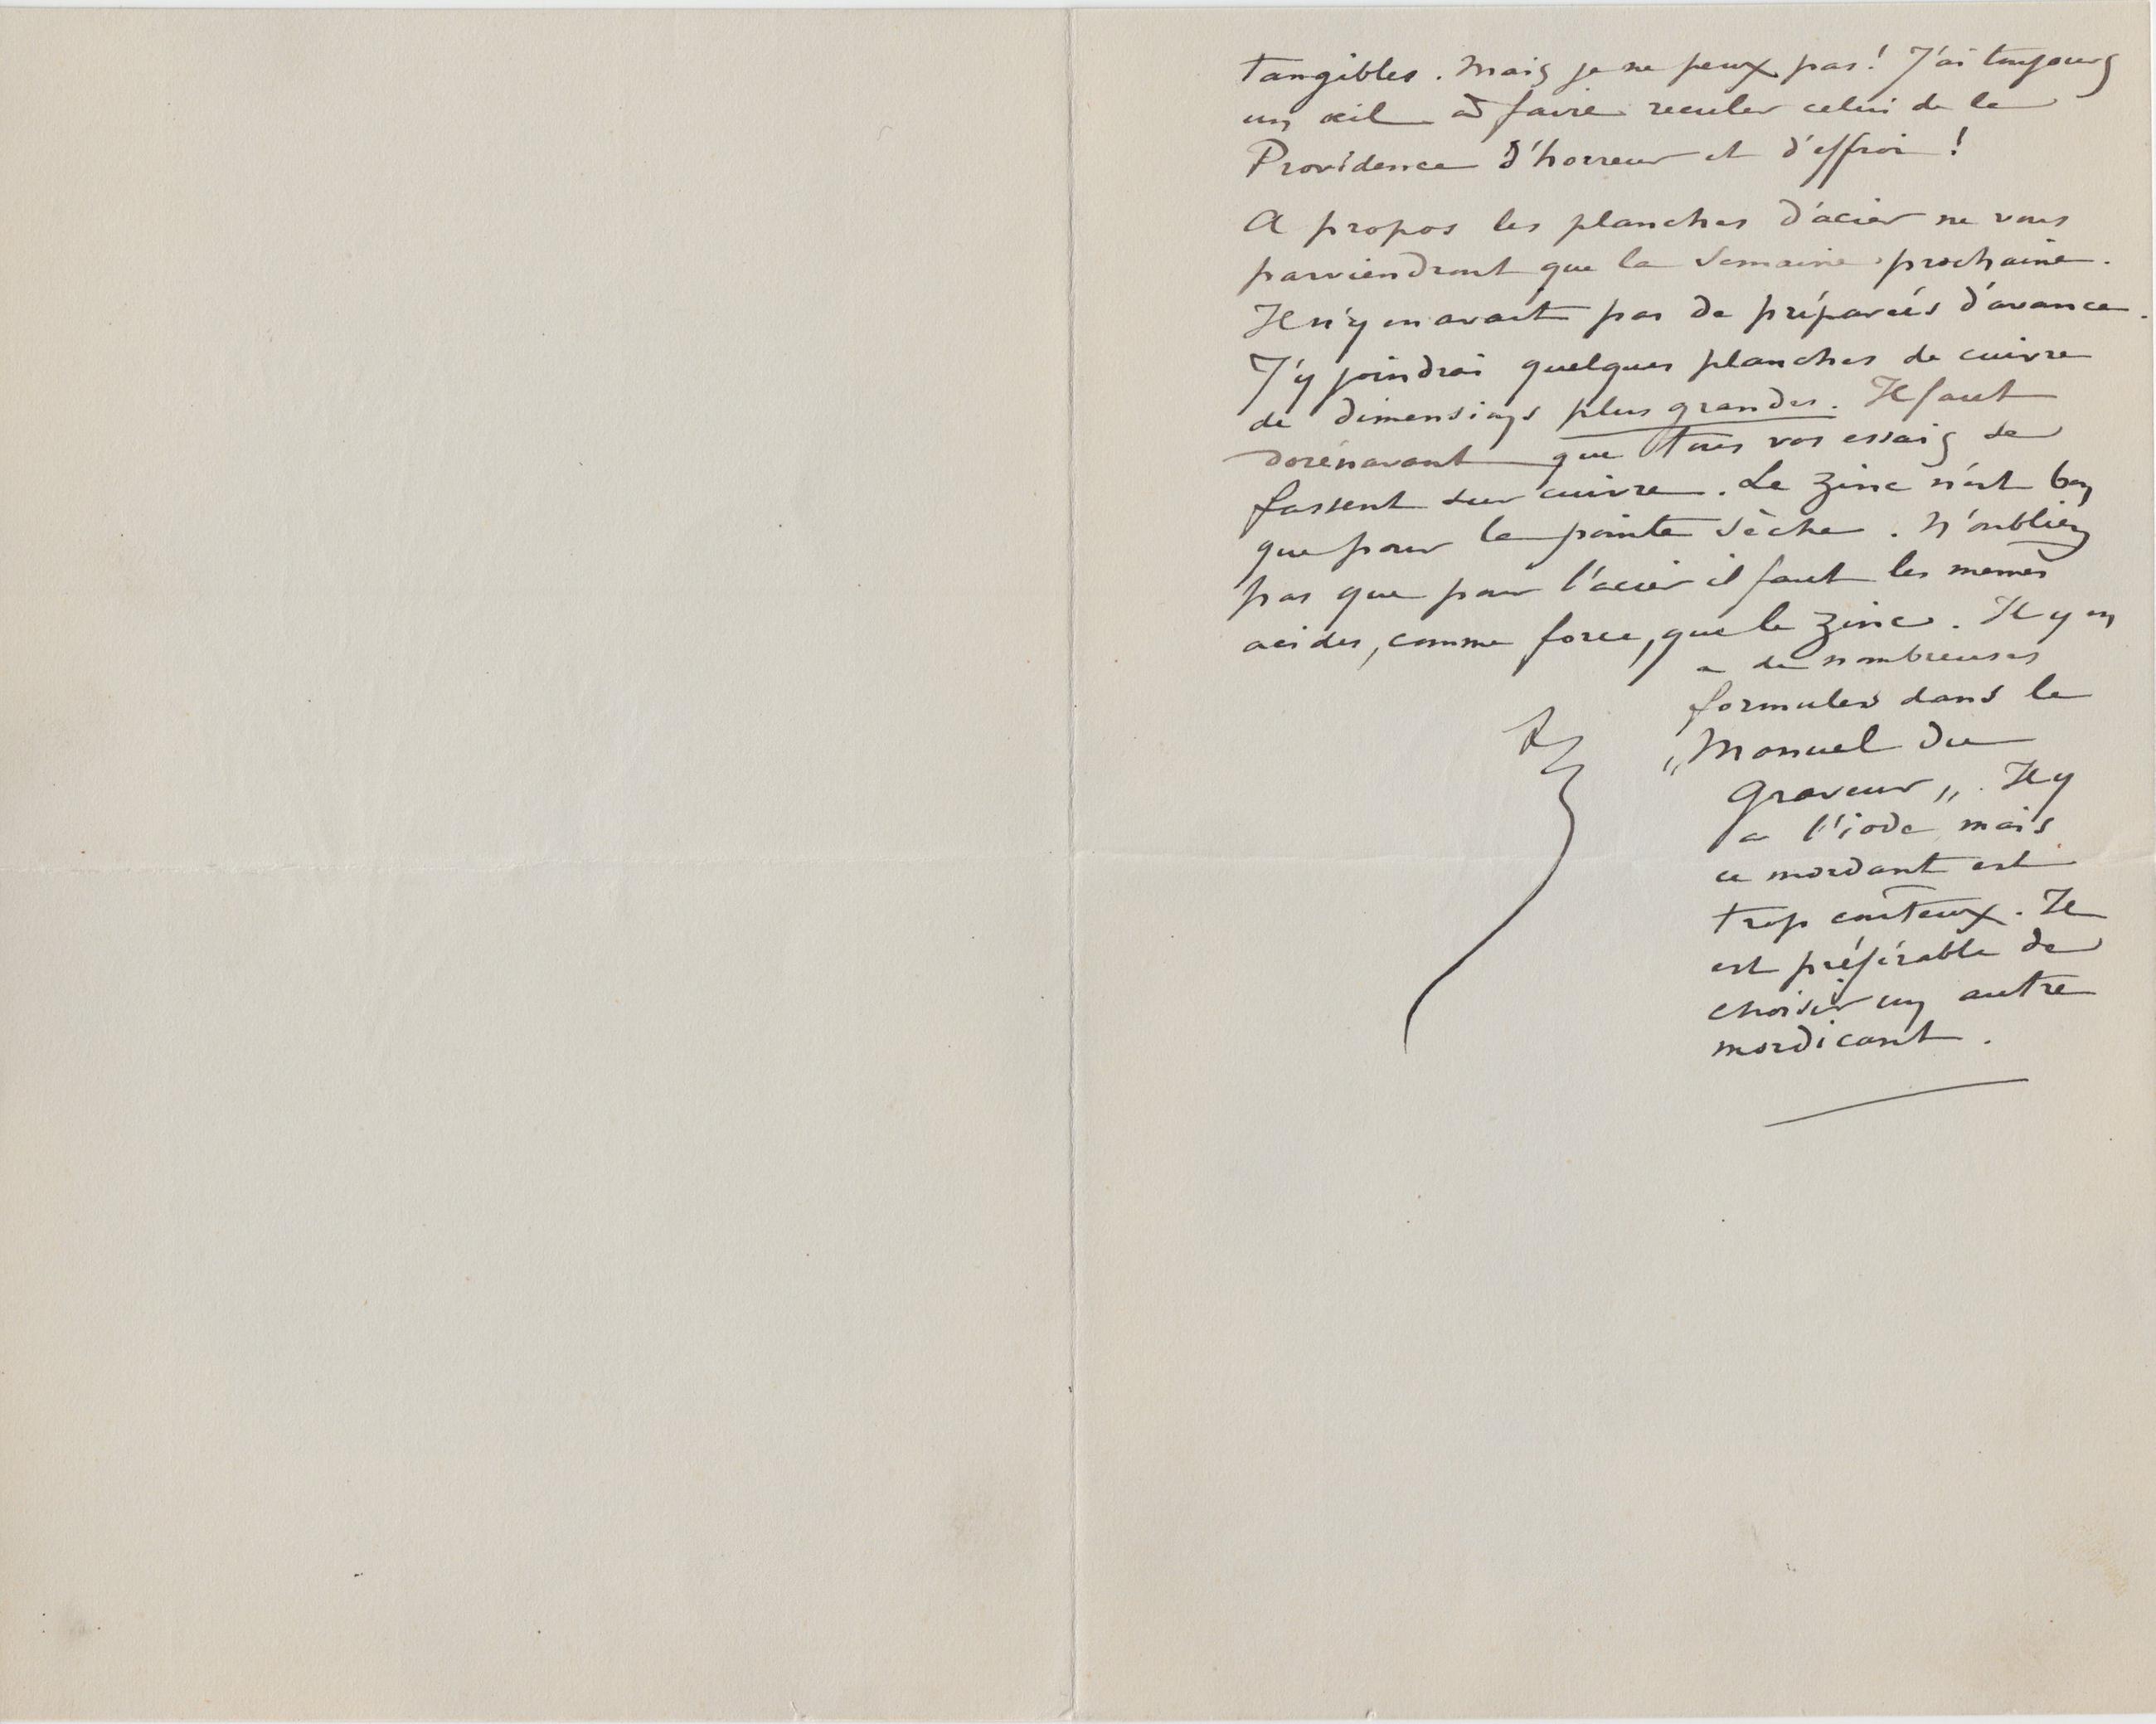 tangibles. Mais je ne peux pas! J'ai toujours
un œil à faire reculer celui de la
Providence d'horreur et d'effroi!
A propos les planches d'acier ne vous
parviendront que la semaine prochaine.
Il n'y en avait pas de préparées d'avance.
J'y joindrai quelques planches de cuivre
de dimensions plus grandes. Il faut
dorénavant que tous vos essais se
fassent sur cuivre. Le zinc n'est bon
que pour la pointe sèche. N'oubliez
pas que pour l'acier il faut les mêmes
acides, comme force, que le zinc. Il y en
a de nombreuses
formules dans le
„Manuel du
Graveur„. Il y
a l'iode mais
ce mordant est
trop coûteux. Il
est préférable de
choisir un autre
mordicant.